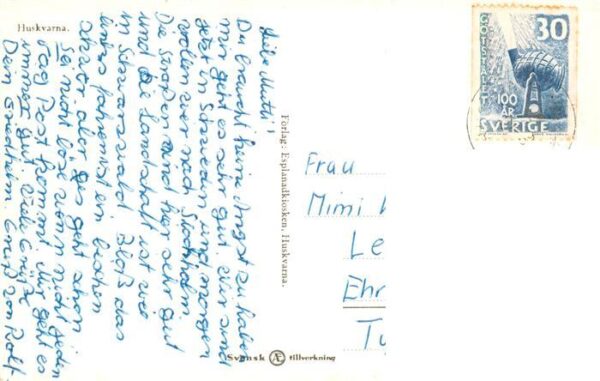 Huskvarna.
Liebe Mutti!
Du brauchst keine Angst zu haben
mir geht es sehr gut. Wir sind
jetzt in Schweden und morgen
wollen wir nach Stockholm
Die Straßen sind hier sehr gut
und die Landschaft ist wie
im Schwarzwald. Bloß das
fahren ist ein bischen
schwer aber es geht schon
Sei nicht böse wenn nicht jeden
Tag Post kommt. Mir geht es
immer gut. Viele Grüße
Dein Gruß von Rolf
Förlag: Esplanadkiosken, Huskvarna.
Svensk Æ tillverkning
30
100
ÅR
SVERIGE
Frau
Mimi
Le
Ehr
Tu